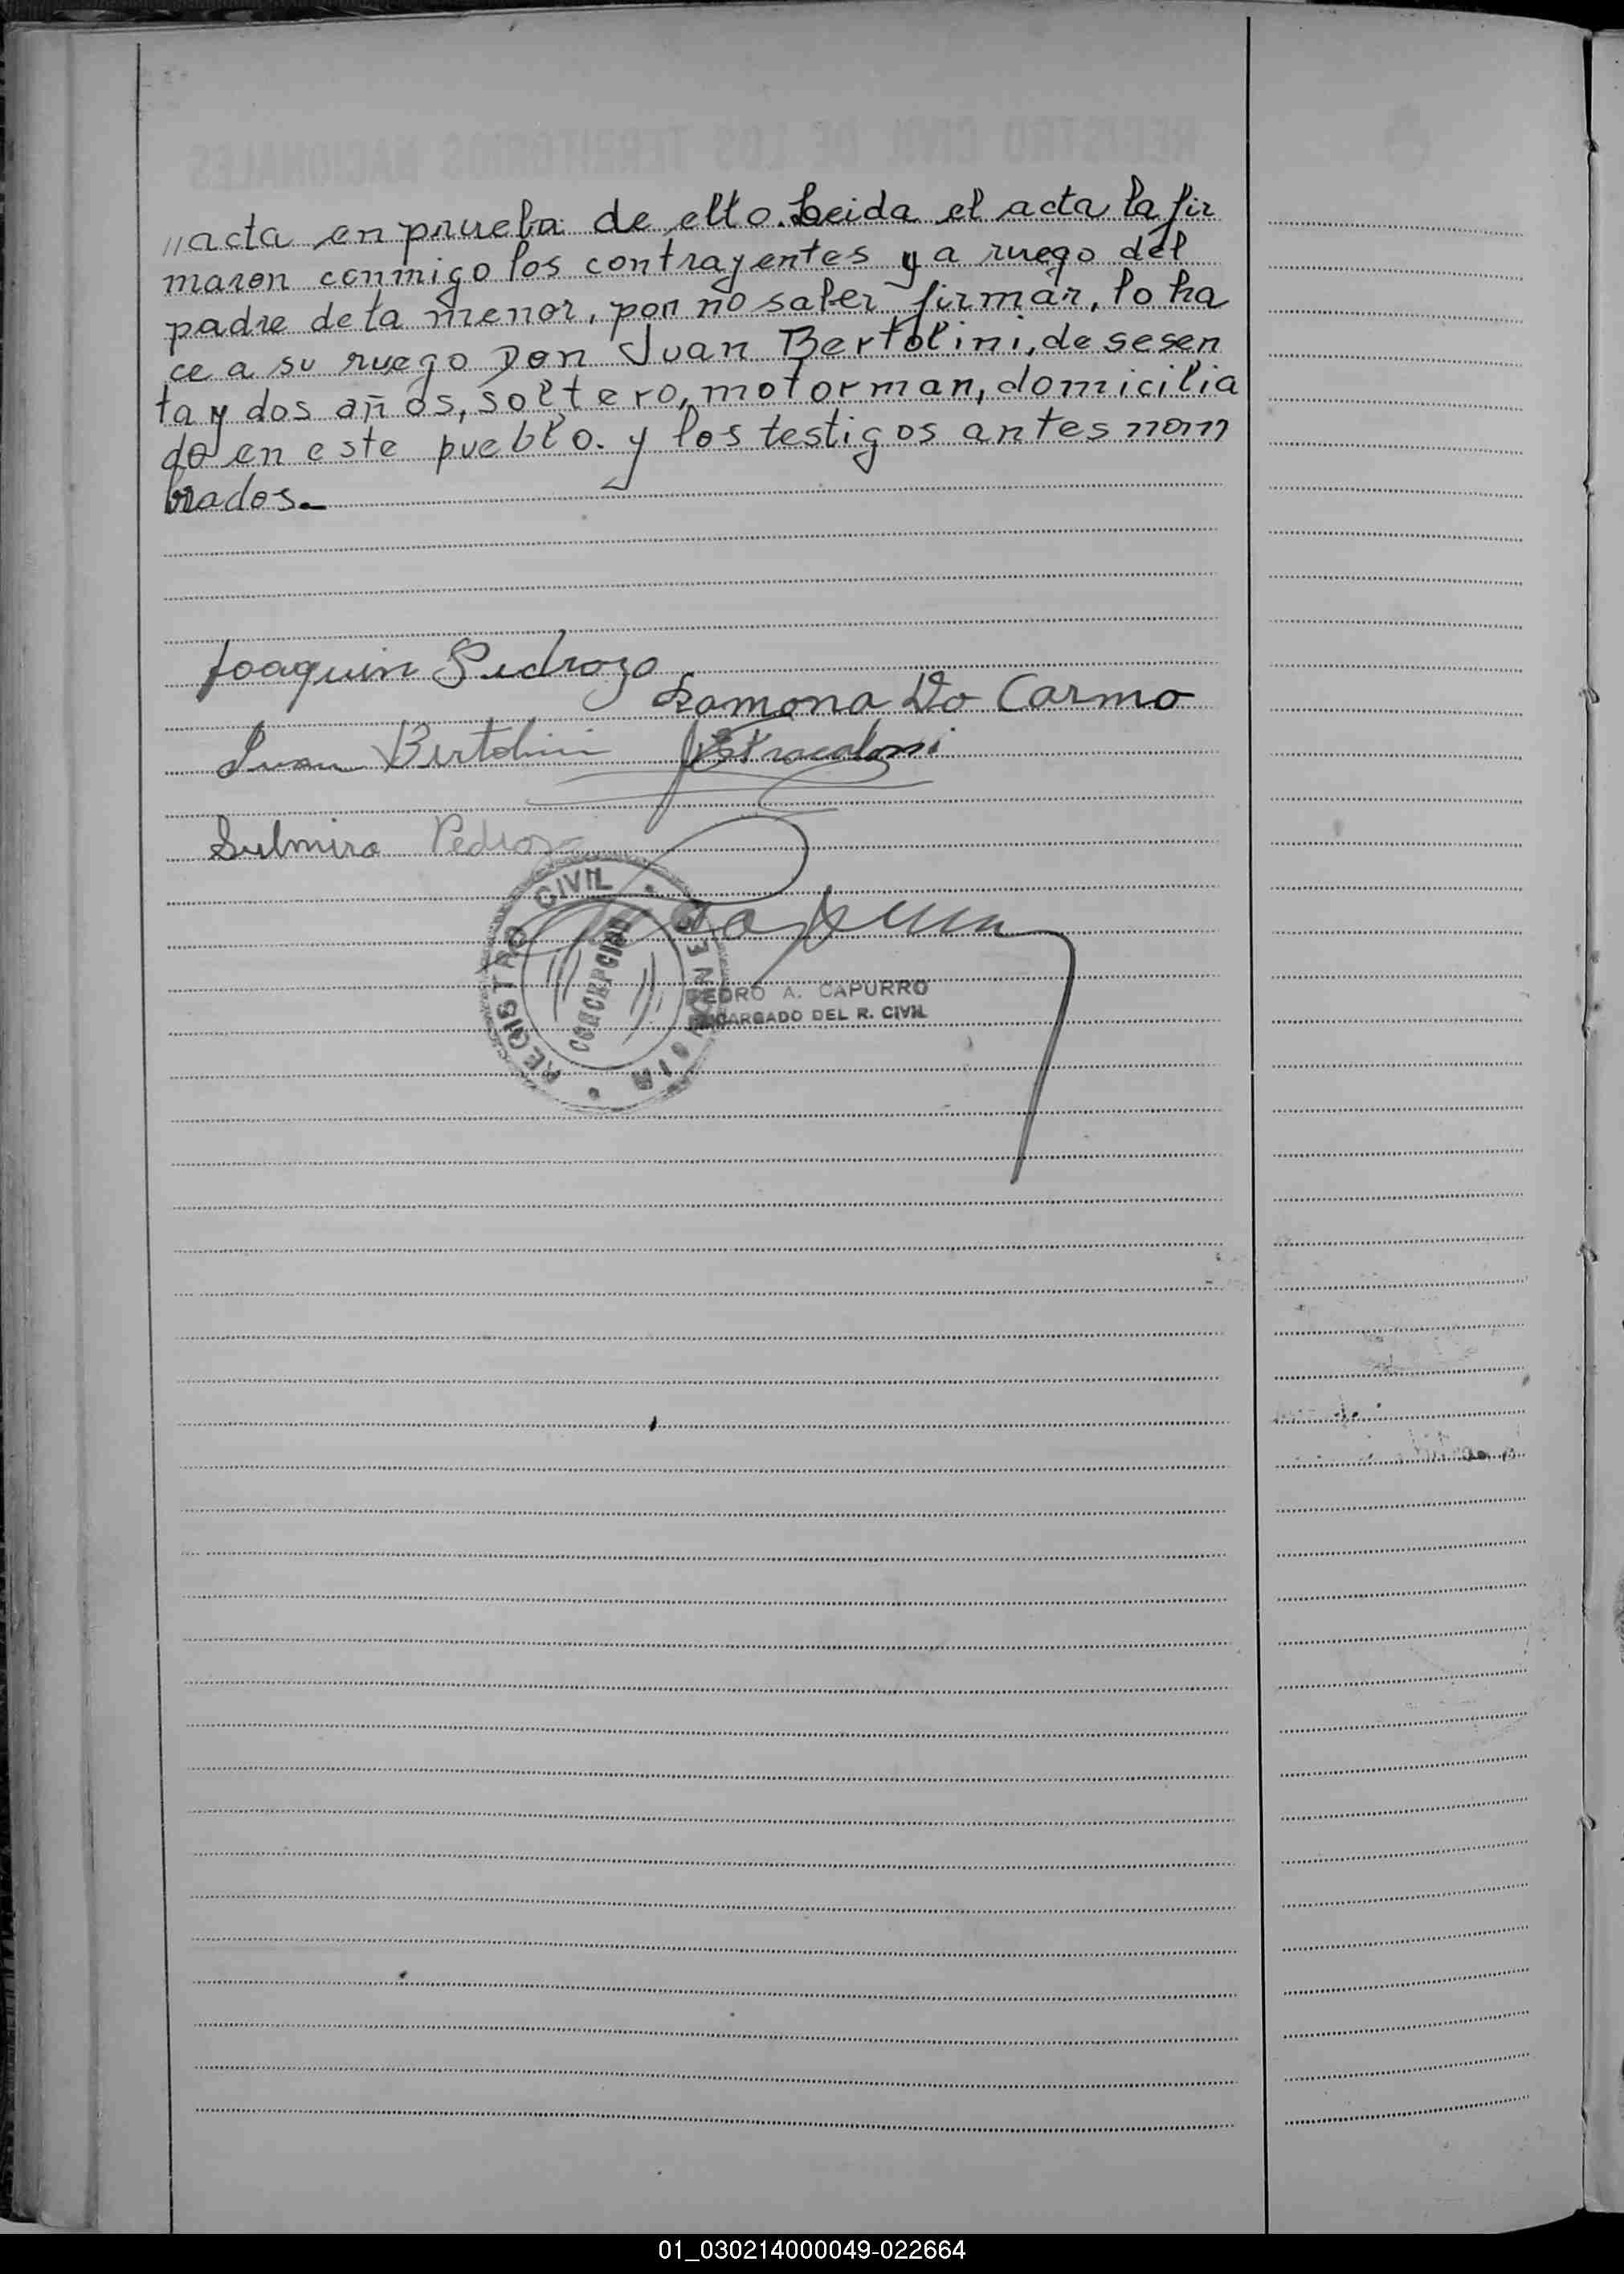 REGISTRO CIVIL DE LOS TERRITORIOS NACIONALES
"acta en prueba de ello. Leida el acta la fir
maron conmigo los contrayentes y a ruego del
padre de la menor, por no saber firmar, lo ha
ce a su ruego Don Juan Bertolini, de sesen
ta y dos años, soltero, motorman, domicilia
do en este pueblo. y los testigos antes nom
brados.-
Joaquin Pedrozo
Ramona Do Carmo
Juan Bertolini
Sulmira Pedrozo
REGISTRO CIVIL
CONCEPCION
MISIONES
PEDRO A. CAPURRO
ENCARGADO DEL R. CIVIL
01_030214000049-022664